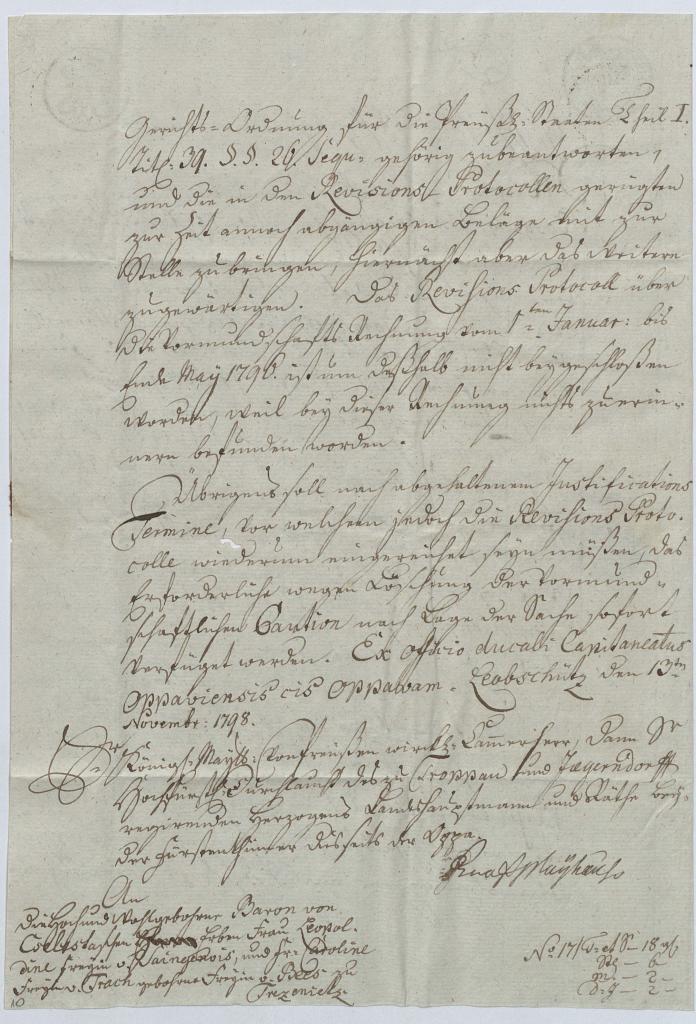 Gerichts-Ordnung für die Preußl: Staaten Theil I.
Tit: 39. §. §. 26. sequ: gehörig zubeantworten,
und die in den Revisions-Protocollen gerügten
zur Zeit annoch abgängigen Beläge mit zur
Stelle zubringen, hiernächst aber das Weitere
zugewärtigen. Das Revisions Protocoll über
die Vormundschafts Rechnung vom 1ten Januar: bis
Ende May 1796. ist um deßhalb nicht beygeschloßen
worden, weil bey dieser Rechnung nichts zuerin-
nern befunden worden.
Übrigens soll nach abgehaltenem Justifications
Termine, vor welchem jedoch die Revisions Proto-
colle wiederum eingereichet seyn müßen, das
Erforderliche wegen Löschung der Vormund-
schaftlichen Caution nach Lage der Sache sofort
verfüget werden. Ex Officio ducali Capitaneatus
Oppaviensis cis Oppavam. Leobschütz den 13ten
Novembr: 1798.
Sr Königl: Mayst: von Preußen wirkl: Cammerherr, dann Sr
Hochfürstl: Durchlaucht des zu Troppau und Jægerndorff
regierenden Herzogens Landeshauptmann und Räthe bey-
der Fürstenthümer disseits der Oppa.
An
die Hoch und Wohlgebohrne Baron von
Erben Frau Leopol-
dine Freyin v. und Fr: Caroline
Freyin v. Trach gebohrne Freyin v. Bees zu
No 171 18
6
2
2
10